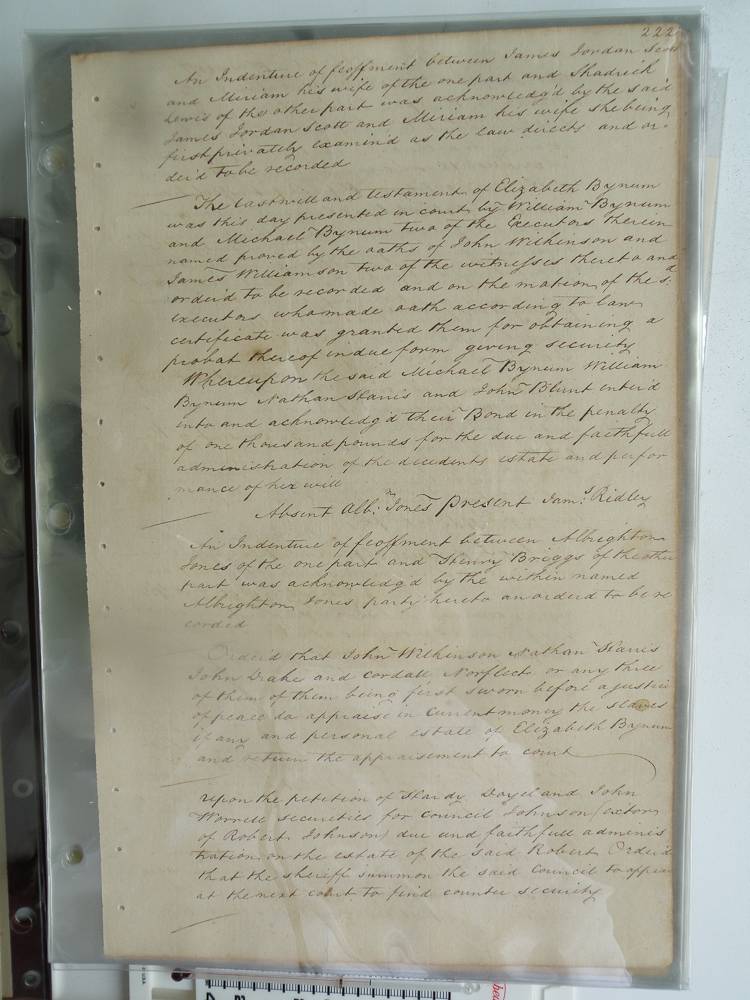 222
An Indenture of feoffment between James Jordan Scott
and Miriam his wife of the one part and Shadrick
Lewis of the other part was acknowledg'd by the said
James Jordan Scott and Miriam his wife she being
first privately examin'd as the law directs and or
der'd to be recorded
The last will and testament of Elizabeth Bynum
was this day presented in court by William Bynum
and Michael Bynum two of the Executors therein
named proved by the oaths of John Wilkinson and
James Williamson two of the witnesses thereto and
order'd to be recorded and on the motion of the sd.
executors who made oath according to law
certificate was granted them for obtaining a
probat thereof in due form giving security
Whereupon the said Michael Bynum William
Bynum Nathan Harris and John Blunt enter'd
into and acknowledg'd their Bond in the penalty
of one thousand pounds for the due and faithfull
administration of the decedents estate and perfor
mance of her will
Absent Alb.n Jones Present Jam.s Ridley
An Indenture of feoffment between Albrighton
Jones of the one part and Henry Briggs of the other
part was acknowledg'd by the within named
Albrighton Jones party hereto an order'd to be re
corded
Order'd that John Wilkinson Nathan Harris
John Drake and Cordall Norfleet or any three
of them of them being first sworn before a justice
of peace do appraise in current money the slaves
if any and personal estate of Elizabeth Bynum
and return the appraisement to court
Upon the petition of Hardy Doyel and John
Worrell securities for Council Johnson (extors
of Robert Johnson) due and faithfull adminis
tration on the estate of the said Robert Order'd
that the sheriff summon the said Council to appear
at the next court to find counter security